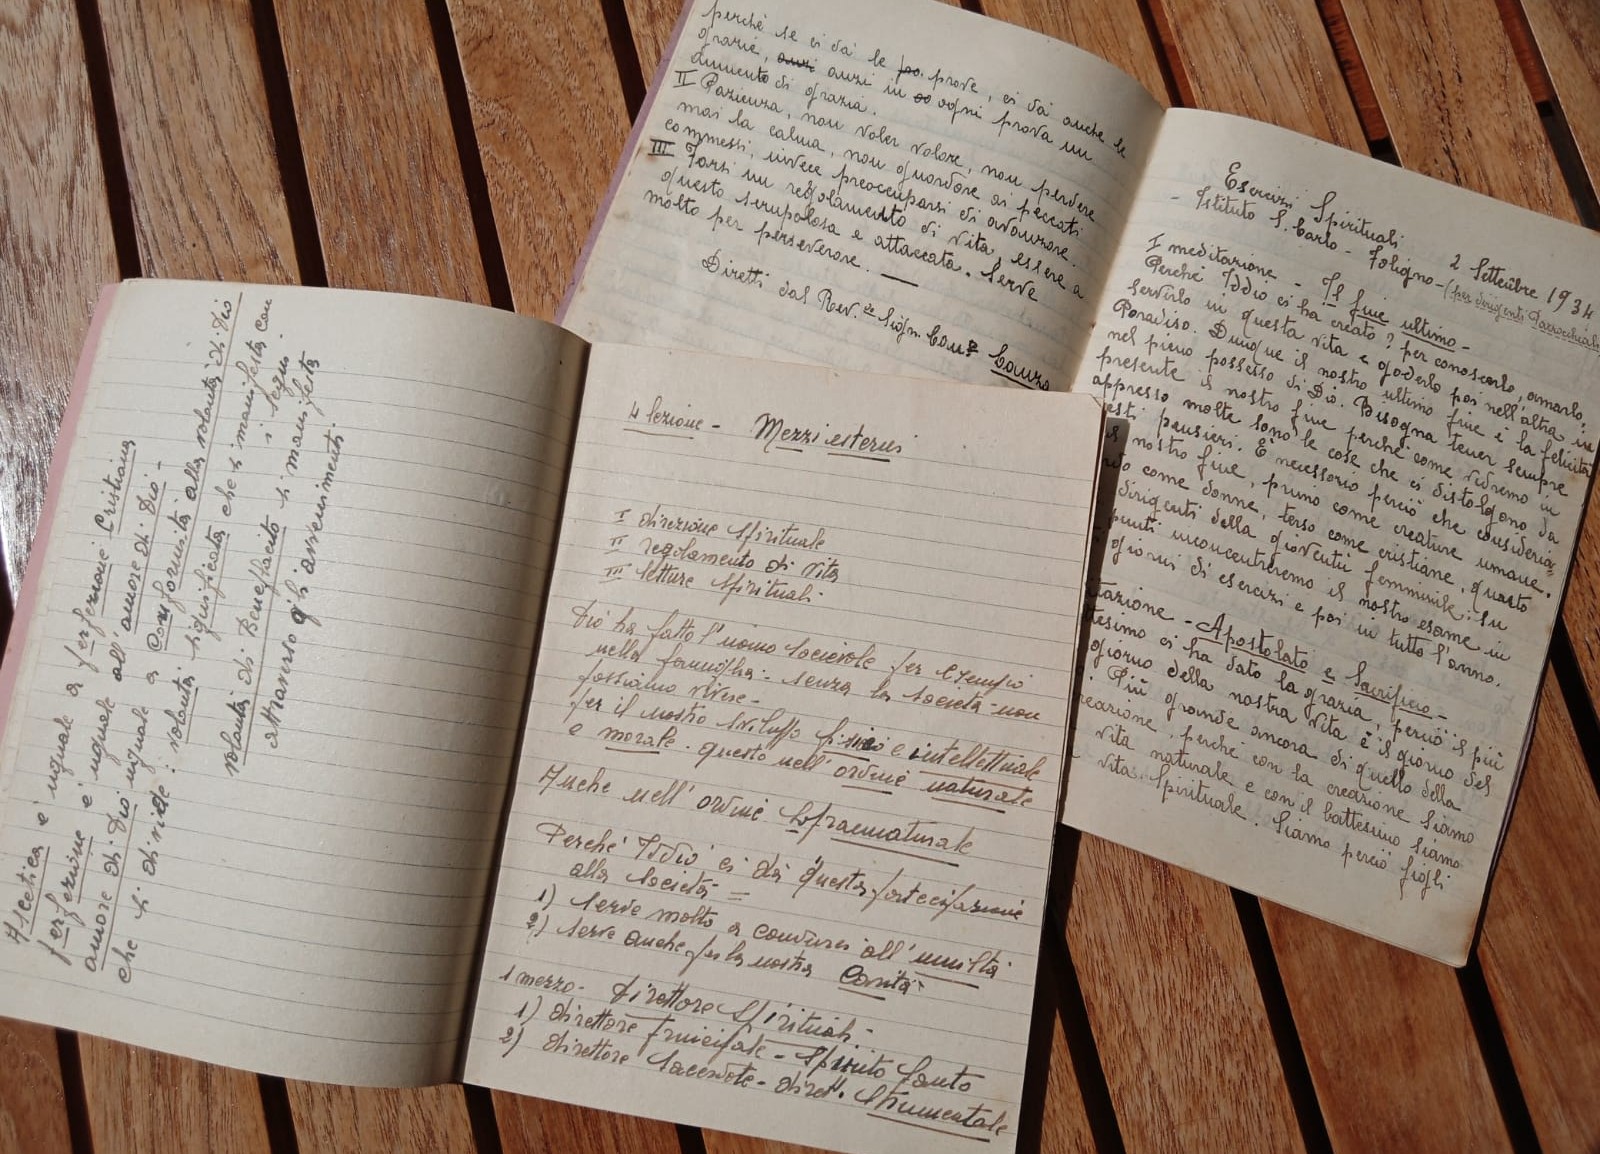 perchè se ci dà le prove, ci dà anche le
grazie, anzi in ogni prova un
aumento di grazia.
II Pazienza, non voler volare, non perdere
mai la calma, non guardare ai peccati
commessi, invece preoccuparsi di
III Farsi un regolamento di vita, essere a
questo scrupolosa e attaccata. Serve
molto per perseverare.
Diretti dal Rev.
Esercizi Spirituali
- Istituto S. Carlo - Foligno - (per dirigenti Parrocchiali
2 Settembre 1934
I meditazione - Il fine ultimo -
Perchè Iddio ci ha creato? per conoscerlo, amarlo,
servirlo in questa vita e goderlo poi nell'altra in
Paradiso. Dunque il nostro ultimo fine è la felicità
nel pieno possesso di Dio. Bisogna tener sempre
presente il nostro fine perchè come vedremo in
appresso molte sono le cose che ci distolgono da
esti pensieri. È necessario perciò che consideria=
nostro fine, primo come creature umane.
do come donne, terzo come cristiane, quarto
dirigenti della gioventù femminile. Su
punti inconcentreremo il nostro esame in
giorni di esercizi e poi in tutto l'anno.
tazione - Apostolato e Sacrificio -
tesimo ci ha dato la grazia, perciò il più
giorno della nostra vita è il giorno del
Più grande ancora di quello della
reazione, perchè con la creazione siamo
vita naturale e con il battesimo siamo
vita Spirituale. Siamo perciò figli
Ascetica è uguale a perfezione Cristiana
perfezione è uguale all'amore di Dio -
amore di Dio uguale a Conformità alla volontà di Dio
che si divide: volontà significata che si manifesta con
i segni.
volontà di Beneplacito si manifesta
attraverso gli avvenimenti
4 lezione - Mezzi esterni
I direzione Spirituale
II regolamento di vita
III letture Spirituali.
Dio ha fatto l'uomo socievole per esempio
nella famiglia: senza la società non
possiamo vivere.
per il nostro sviluppo fisico e intellettuale
e morale. questo nell'ordine naturale
Anche nell'ordine Sopraenaturale
Perchè Iddio ci dà questa partecipazione
alla società =
1) serve molto a condurci all'umiltà
2) serve anche per la nostra Carità
1 mezzo - Direttore Spirituale
1) direttore principale - Spirito Santo
2) direttore Sacerdote - dirett. Strumentale